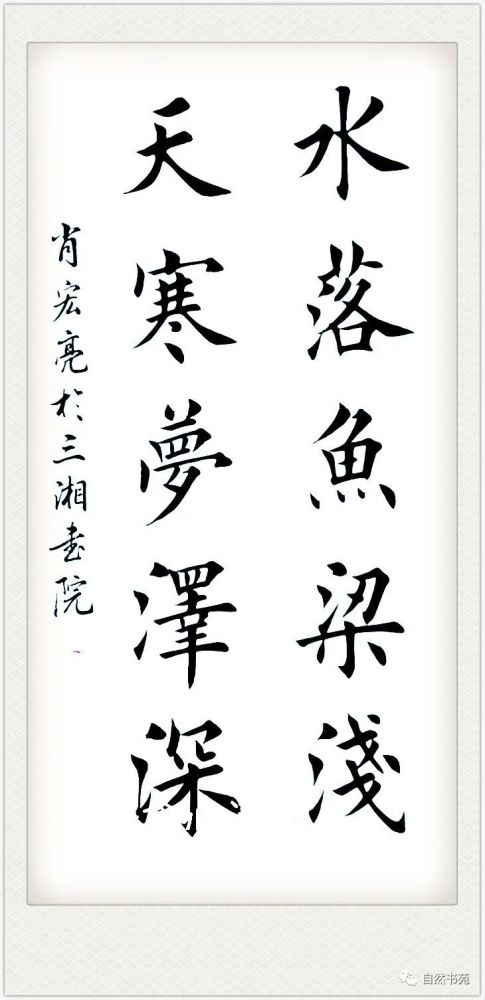 水落魚梁淺
天寒夢澤深
肖宏亮於三湘書院
自然书苑